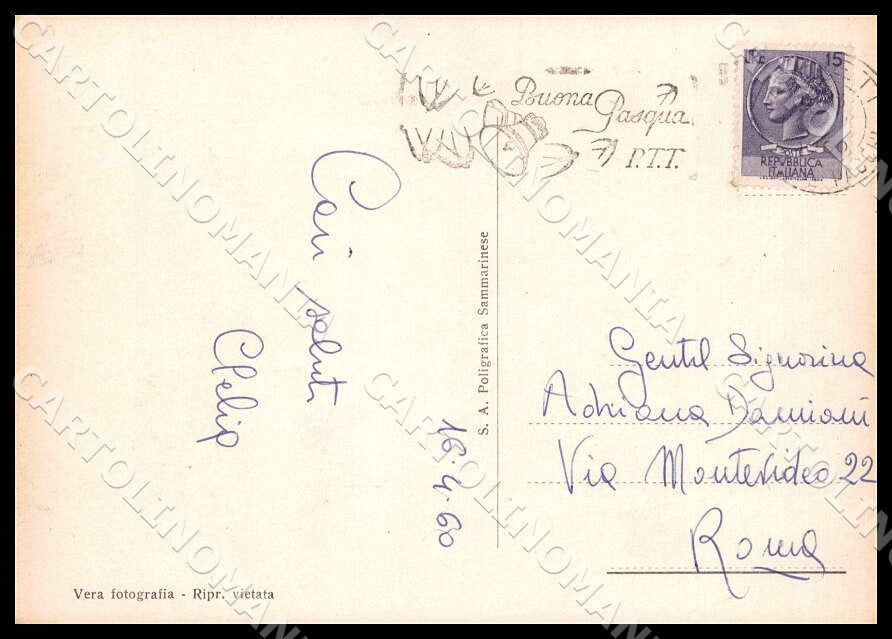 Buona
Pasqua
P.T.T.
15
POSTE
REPVBBLICA
ITALIANA
Cari saluti
Clelia
16.4.60
S. A. Poligrafica Sammarinese
Gentil Signorina
Adriana Damiani
Via Montevideo 22
Roma
Vera fotografia - Ripr. vietata
CARTOLINOMANIA